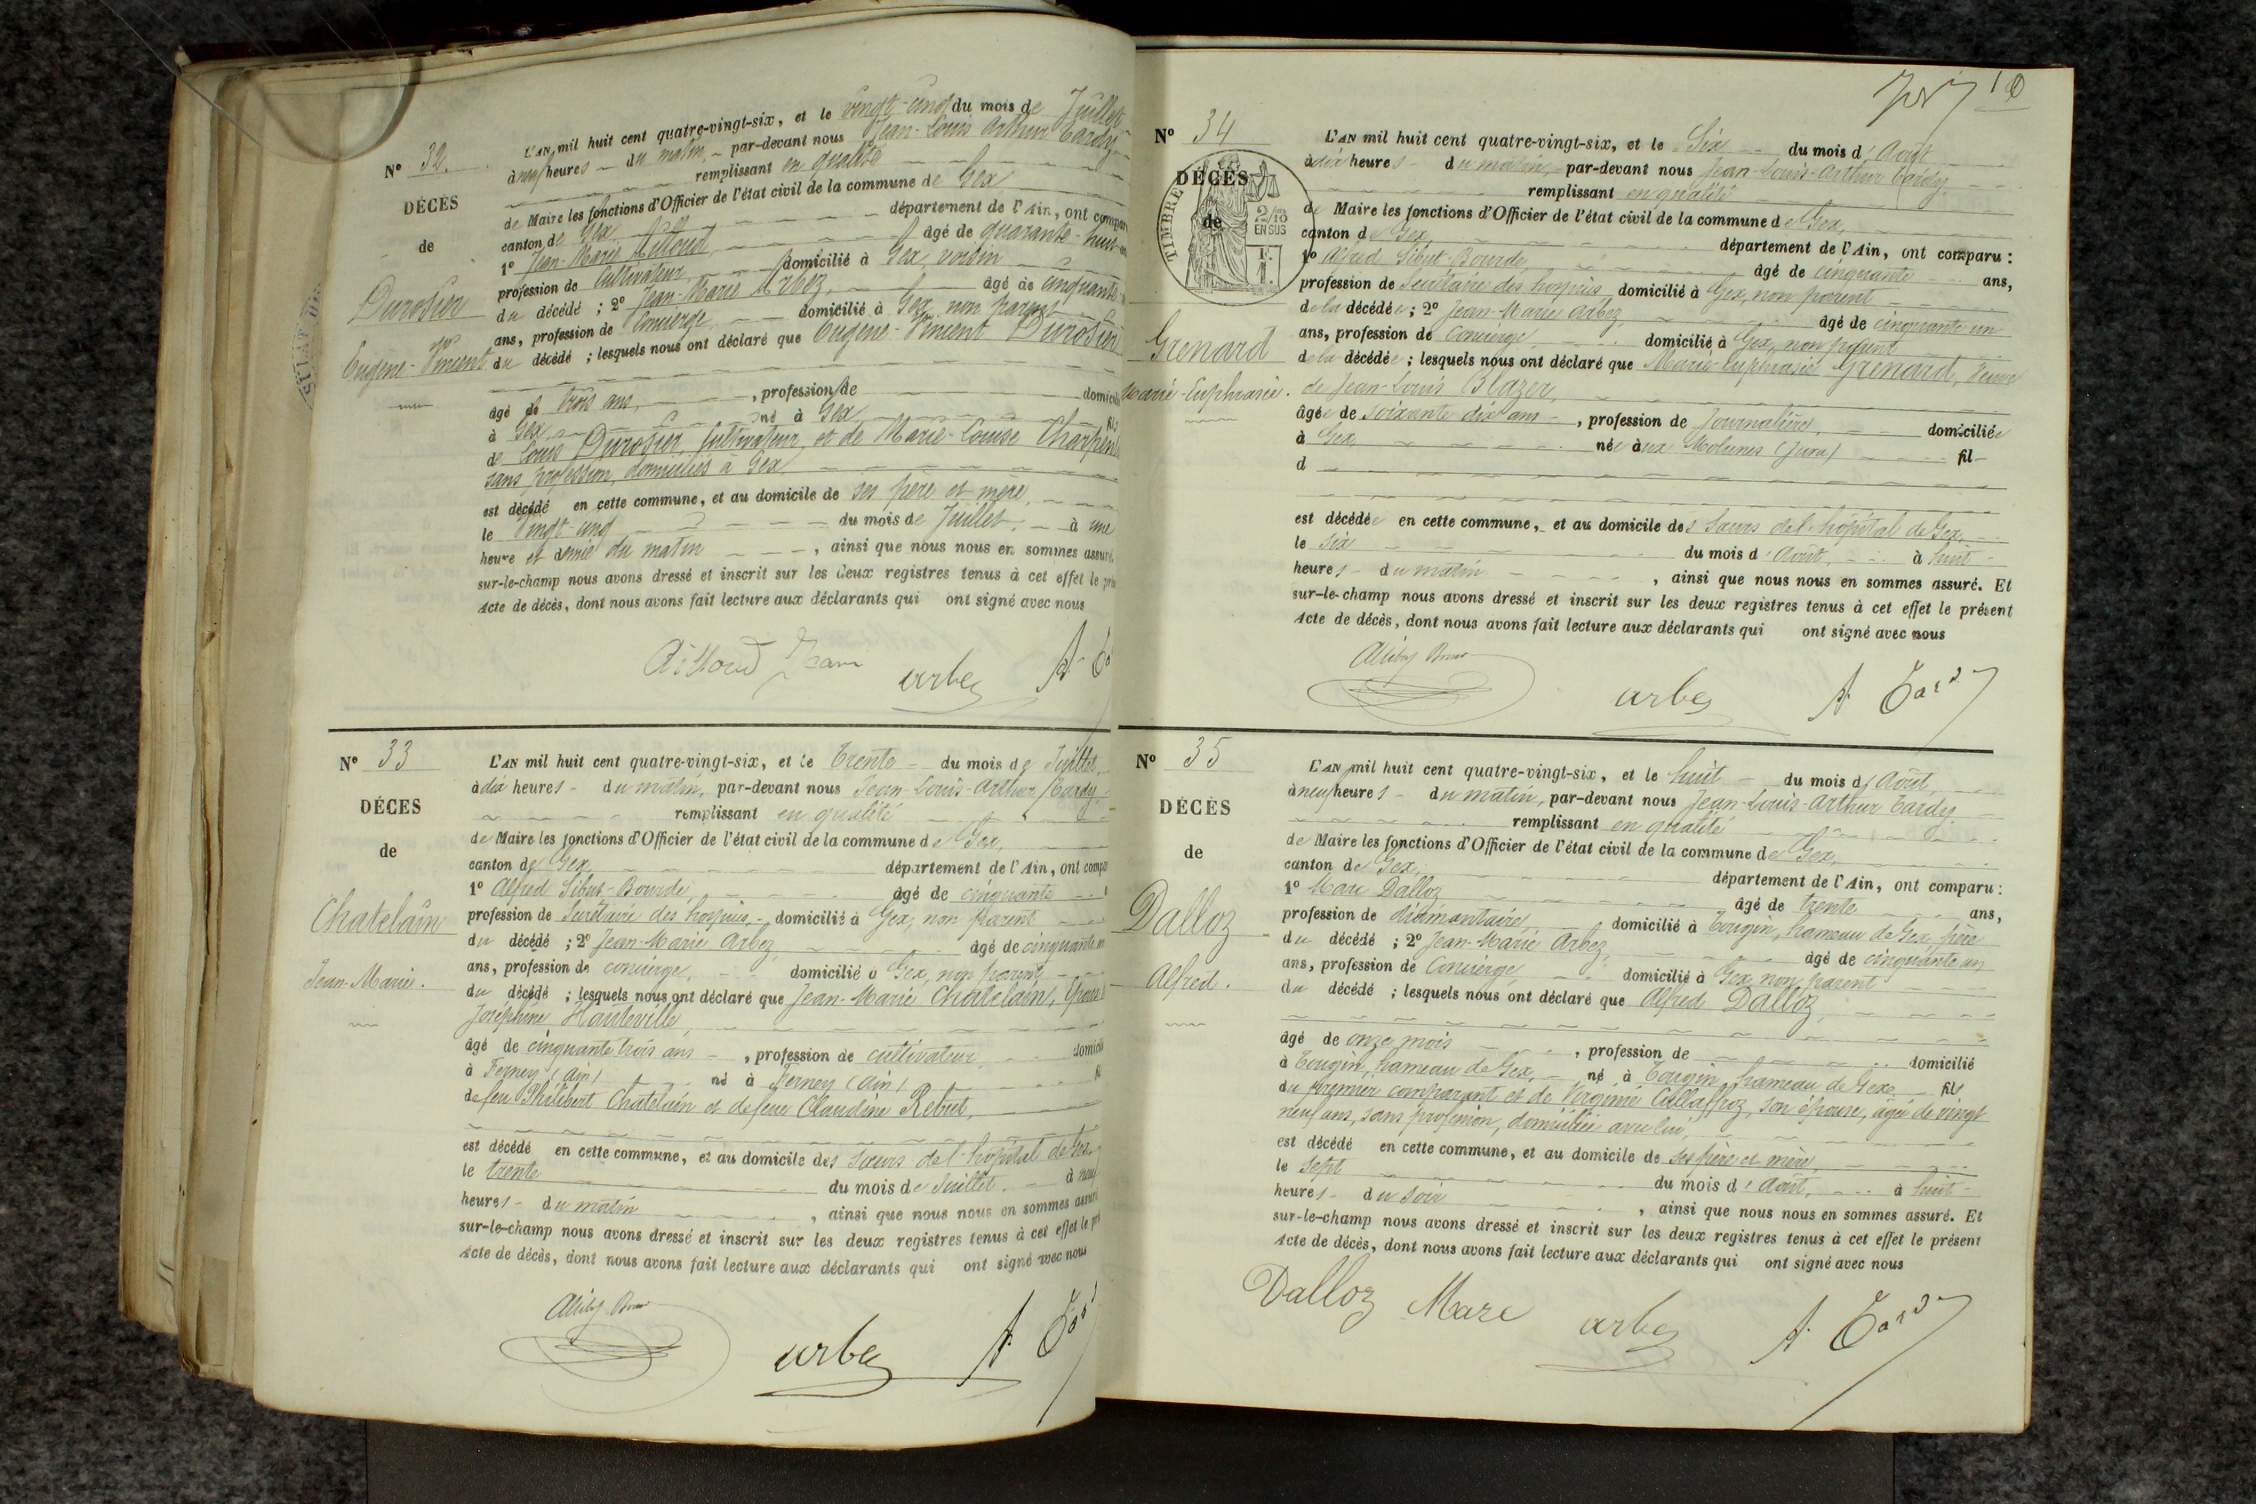 N° 32.
DÉCÈS
de
Durosier
Eugene-Vincent
L'AN mil huit cent quatre-vingt-six, et le vingt-cinq du mois de Juillet
à neuf heures du matin, par-devant nous Jean-Louis Arthur Tardy
remplissant en qualité
de Maire les fonctions d'Officier de l'état civil de la commune de Gex
canton de Gex département de l'Ain, ont compar
1° Jean-Marie âgé de quarante-huit
profession de Cultivateur domicilié à Gex, voisin
du décédé ; 2° Jean-Marie Arbez, âgé de cinquante
ans, profession de Concierge domicilié à Gex, non parent
du décédé ; lesquels nous ont déclaré que Eugene-Vincent Durosier
âgé de trois ans, , profession de domicilié
à Gex né à Gex, fils
de Louis Durosier, cultivateur, et de Marie-Louise
sans profession, domiciliés à Gex
est décédé en cette commune, et au domicile de ses père et mère,
le Vingt-cinq du mois de Juillet, à une
heure et demie du matin , ainsi que nous nous en sommes assuré.
sur-le-champ nous avons dressé et inscrit sur les deux registres tenus à cet effet le pré
Acte de décès, dont nous avons fait lecture aux déclarants qui ont signé avec nous
Jean arbez A. Ta
N° 33
DÉCES
de
Chatelain
Jean-Marie.
L'AN mil huit cent quatre-vingt-six, et le Trente du mois de Juillet,
à dix heures du matin, par-devant nous Jean-Louis-Arthur Tardy,
remplissant en qualité
de Maire les fonctions d'Officier de l'état civil de la commune de Gex,
canton de Gex, département de l'Ain, ont compa
1° Alfred Sibut-Bourde, âgé de cinquante
profession de Secrétaire des hospices, domicilié à Gex, non parent
du décédé ; 2° Jean-Marie Arbez, âgé de cinquante un
ans, profession de concierge, domicilié à Gex, non parent
du décédé ; lesquels nous ont déclaré que Jean-Marie Chatelain, Epoux
Joséphine Hauteville,
âgé de cinquante trois ans , profession de cultivateur domicilié
à Ferney (Ain) né à Ferney (Ain) fi
de feu Philibert Chatelain et de feue Claudine Rebut,
est décédé en cette commune, et au domicile des sœurs de l'hôpital de Gex,
le trente du mois de Juillet à neuf
heures du matin , ainsi que nous nous en sommes assuré
sur-le-champ nous avons dressé et inscrit sur les deux registres tenus à cet effet le pré
Acte de décès, dont nous avons fait lecture aux déclarants qui ont signé avec nous
arbez A. Tard
10
N° 34
DÉCÈS
de
TIMBRE
2/10
EN SUS
Grenard
Marie-Euphrasie.
L'AN mil huit cent quatre-vingt-six, et le Six du mois d'Août
à dix heures du matin, par-devant nous Jean-Louis-Arthur Tardy
remplissant en qualité
de Maire les fonctions d'Officier de l'état civil de la commune de Gex,
canton de Gex, département de l'Ain, ont comparu :
1° Alfred Sibut-Bourde, âgé de cinquante ans,
profession de Secrétaire des hospices, domicilié à Gex, non parent
de la décédée ; 2° Jean-Marie Arbez, âgé de cinquante un
ans, profession de concierge, domicilié à Gex, non parent
de la décédée ; lesquels nous ont déclaré que Marie-Euphrasie Grenard, Veuve
de Jean-Louis Blazer,
âgée de soixante dix ans , profession de Journalière, domiciliée
à Gex née aux Molunes (Jura) fil
d
est décédée en cette commune, et au domicile des sœurs de l'hôpital de Gex,
le six du mois d'Août, à huit
heures du matin , ainsi que nous nous en sommes assuré. Et
sur-le-champ nous avons dressé et inscrit sur les deux registres tenus à cet effet le présent
Acte de décès, dont nous avons fait lecture aux déclarants qui ont signé avec nous
arbez A. Tardy
N° 35
DÉCÈS
de
Dalloz
Alfred.
L'AN mil huit cent quatre-vingt-six, et le huit du mois d'Août,
à neuf heures du matin, par-devant nous Jean-Louis-Arthur Tardy
remplissant en qualité
de Maire les fonctions d'Officier de l'état civil de la commune de Gex,
canton de Gex, département de l'Ain, ont comparu :
1° Marc Dalloz âgé de trente ans,
profession de diamantaire, domicilié à Tougin, hameau de Gex, père
du décédé ; 2° Jean-Marie Arbez, âgé de cinquante un
ans, profession de Concierge, domicilié à Gex, non parent
du décédé ; lesquels nous ont déclaré que Alfred Dalloz,
âgé de onze mois , profession de domicilié
à Tougin, hameau de Gex, né à Tougin, hameau de Gex, fils
du premier comparant et de Virginie son épouse, âgée de vingt
neuf ans, sans profession, domiciliée avec lui,
est décédé en cette commune, et au domicile de ses père et mère,
le sept du mois d'Août, à huit
heures du soir , ainsi que nous nous en sommes assuré. Et
sur-le-champ nous avons dressé et inscrit sur les deux registres tenus à cet effet le présent
Acte de décès, dont nous avons fait lecture aux déclarants qui ont signé avec nous
Dalloz Marc arbez A. Tardy